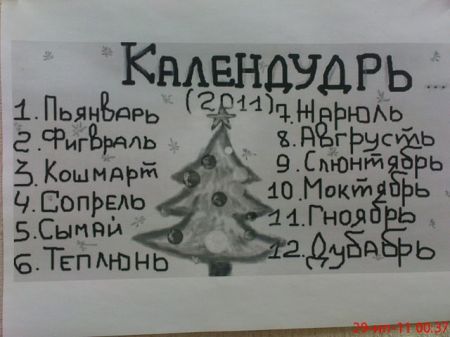 КАЛЕНДУДРЬ...
(2011)
1. ПЬЯНВАРЬ
2. ФИГВРАЛЬ
3. КОШМАРТ
4. СОПРЕЛЬ
5. СЫМАЙ
6. ТЕПЛЮНЬ
7. ЖАРЮЛЬ
8. АВГРУСТЬ
9. СЛЮНТЯБРЬ
10. МОКТЯБРЬ
11. ГНОЯБРЬ
12. ДУБАБРЬ